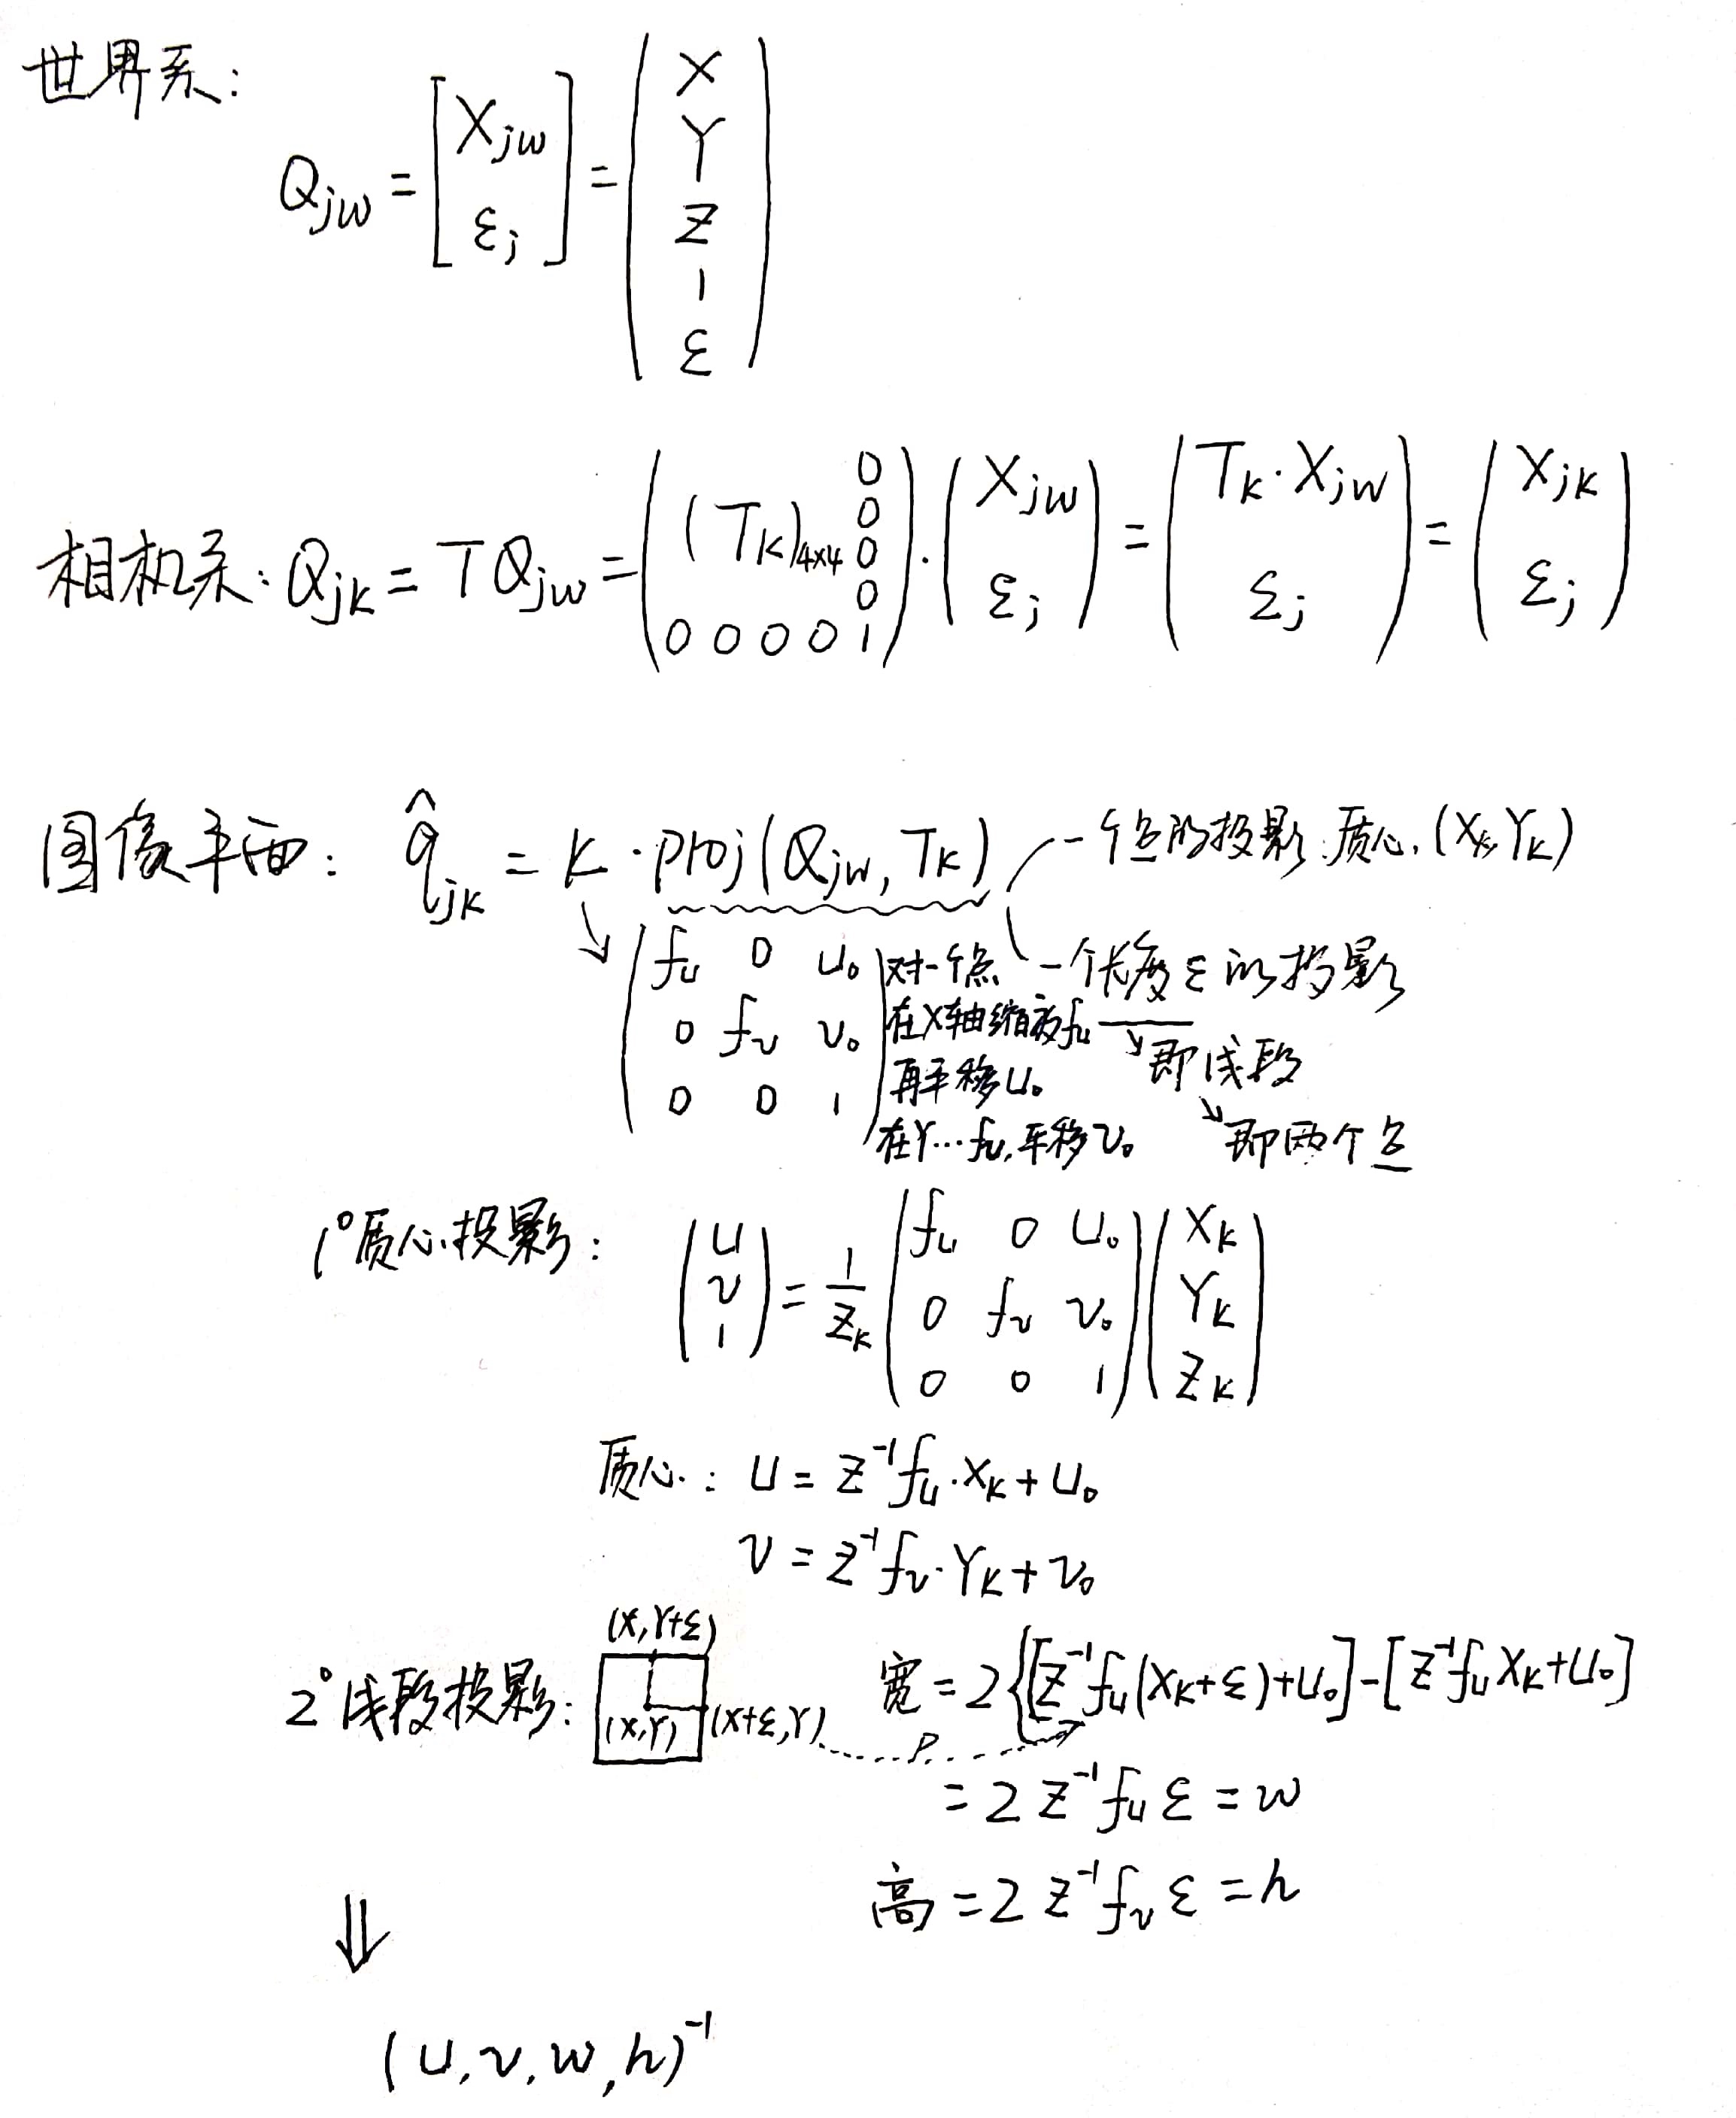 世界系:
Q_{jw} = [X_{jw} ε_j] = (X Y Z 1 ε)
相机系: Q_{jk} = T Q_{jw} = ((T_k)_{4×4} 0 0 0 0 0 0 0 0 1) · (X_{jw} ε_j) = (T_k·X_{jw} ε_j) = (X_{jk} ε_j)
图像平面: q̂_{jk} = K · proj(Q_{jw}, T_k)
一个点的投影:质心.(X_k,Y_k)
一个长度ε的投影
即线段
即两个点
(f_u 0 u_0
0 f_v v_0
0 0 1)
对一个点
在X轴缩放f_u
再平移u_0
在Y…f_v,平移v_0
1°质心投影: (u v 1) = 1/Z_k (f_u 0 u_0 0 f_v v_0 0 0 1) (X_k Y_k Z_k)
质心: u = Z^{-1} f_u·X_k + u_0
v = Z^{-1} f_v·Y_k + v_0
2°线段投影:
(X,Y+ε)
(X,Y)
(X+ε,Y)
P
宽 = 2{[Z^{-1} f_u(X_k+ε)+u_0]-[Z^{-1} f_u X_k+u_0]
= 2 Z^{-1} f_u ε = w
高 = 2 Z^{-1} f_v ε = h
⇓
(u,v,w,h)^{-1}